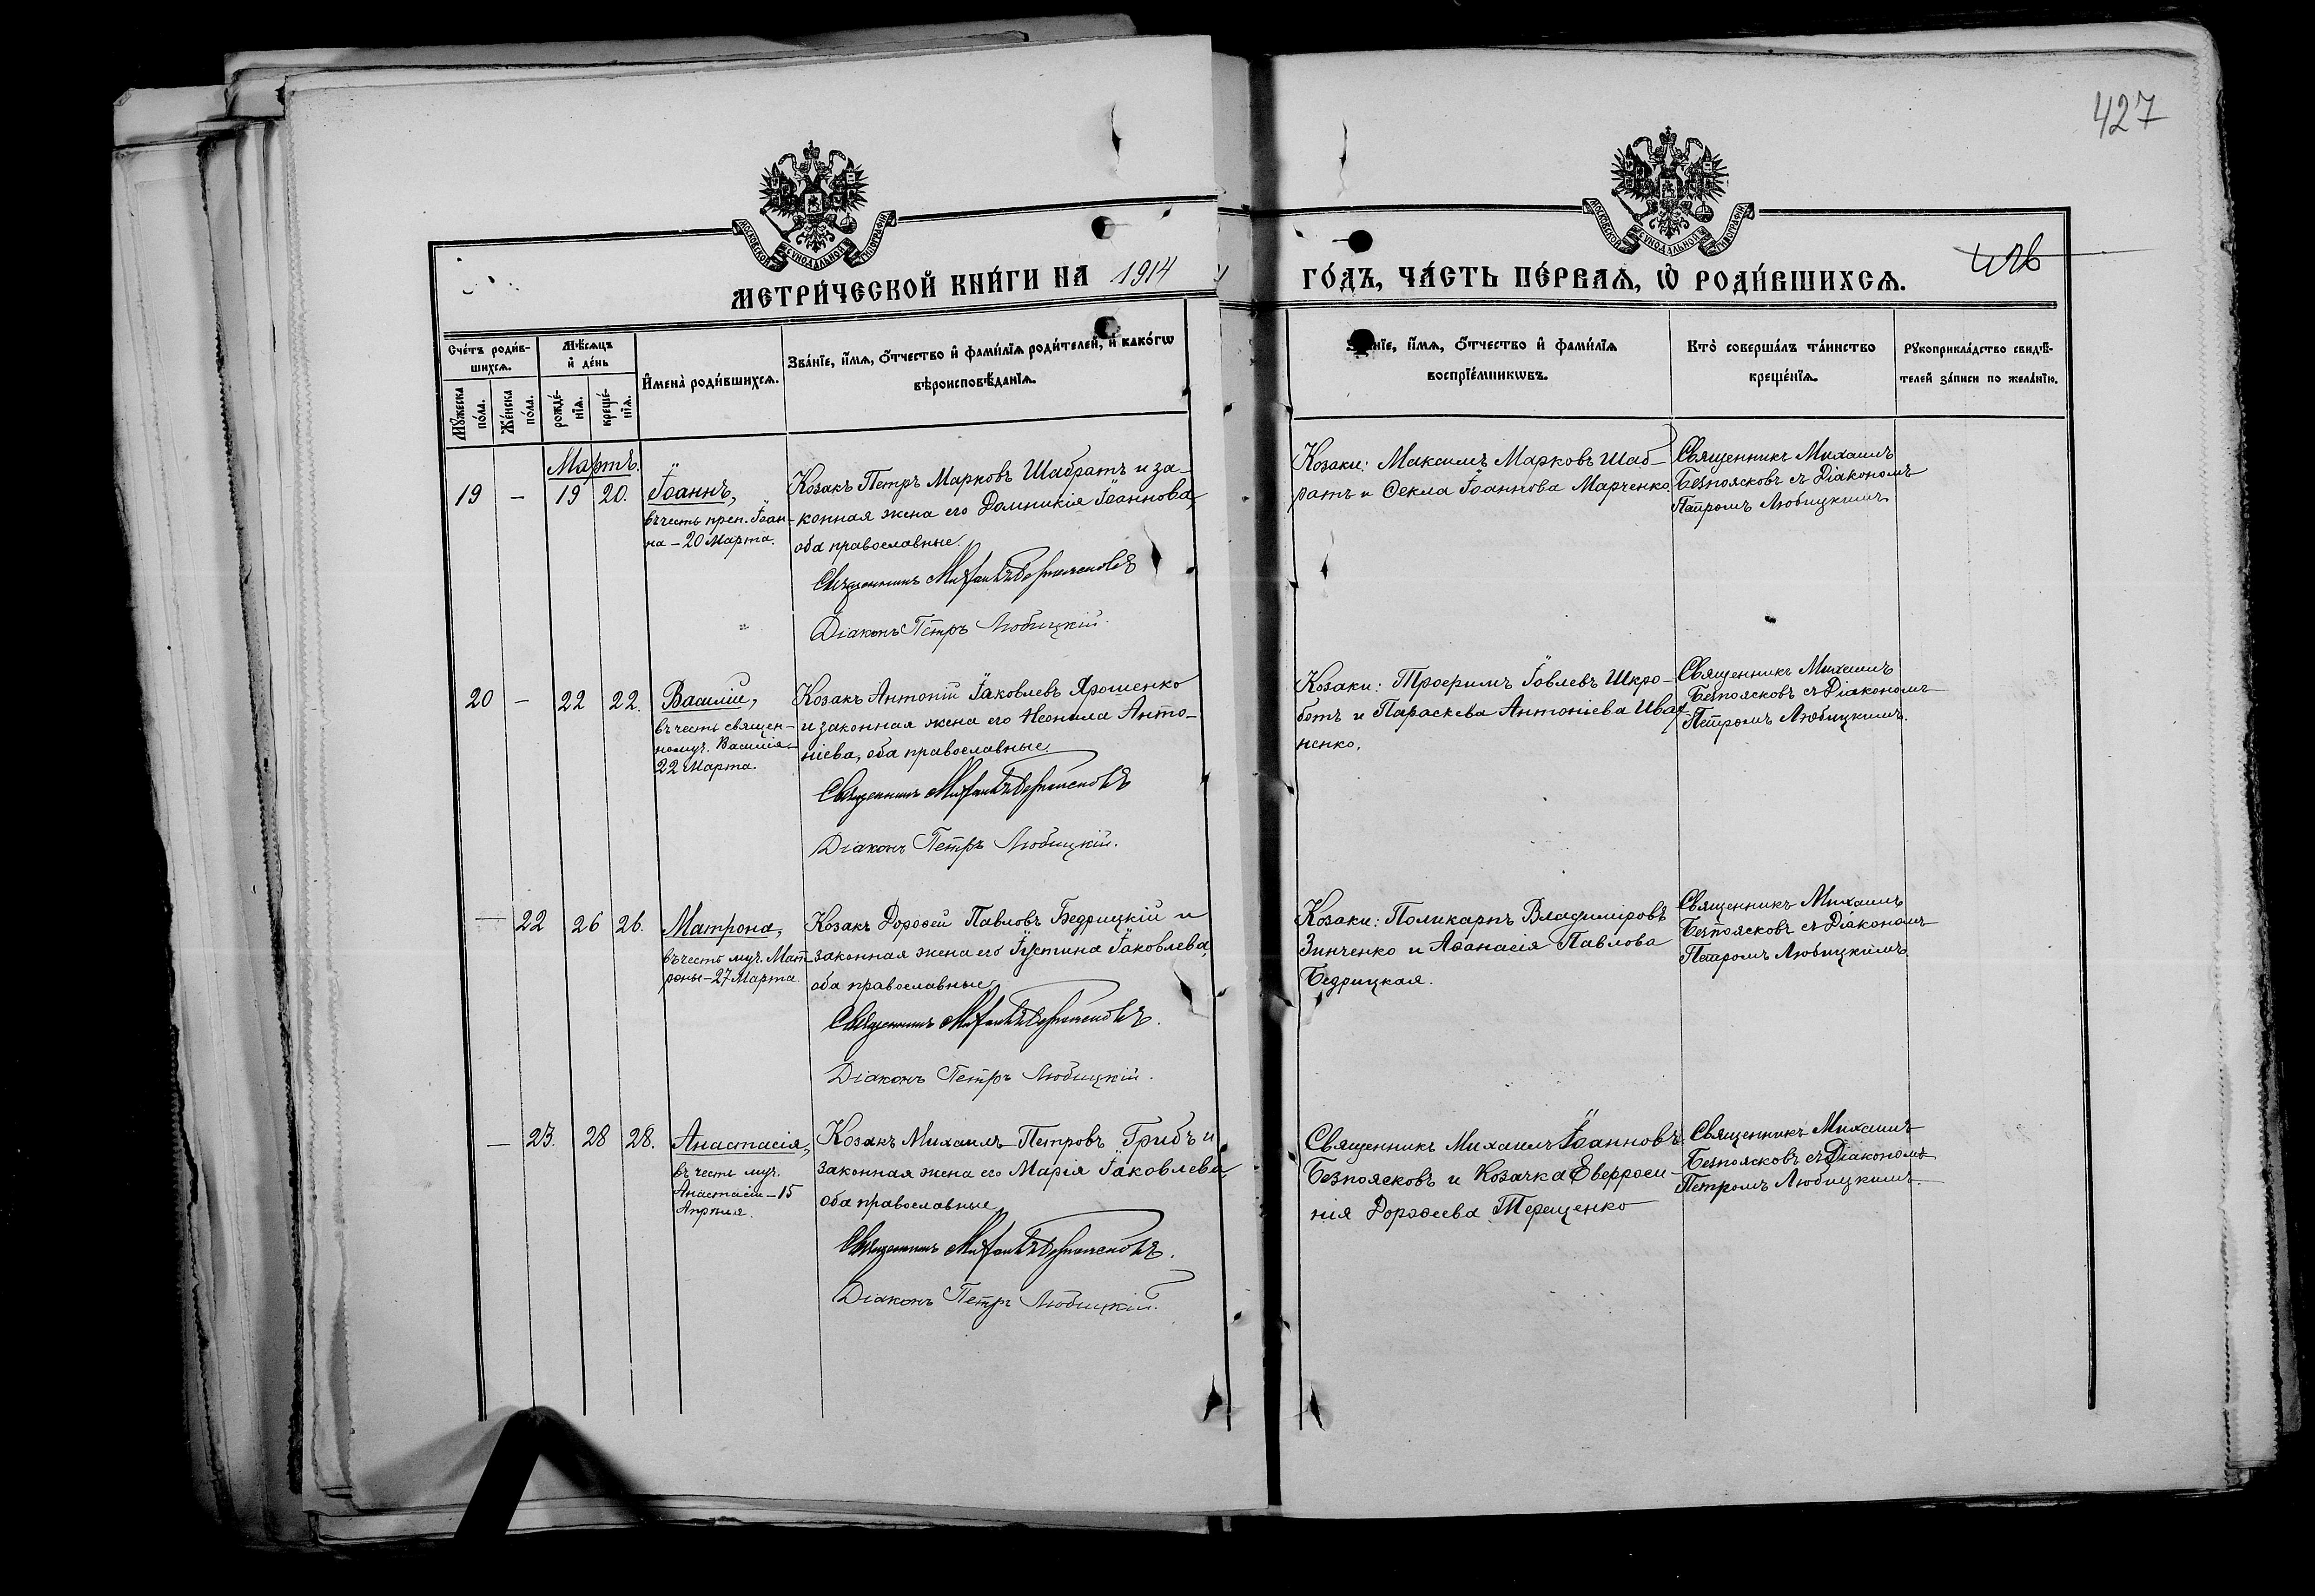 427
МОСКОВСКОЙ СѴНОДАЛЬНОЙ ТИПОГРАФІИ
МОСКОВСКОЙ СѴНОДАЛЬНОЙ ТИПОГРАФІИ
МЕТРИ́ЧЕСКОЙ КНИ́ГИ НА 1914
ГО́ДЪ, ЧА́СТЬ ПЕ́РВАѦ, Ѡ РОДИ́ВШИХСѦ.
Сче́тъ роди́в-
шихсѧ.
Мꙋ́жеска
по́ла.
Же́нска
по́ла.
Мѣ́сѧцъ
и҆ де́нь
рожде́-
нїѧ.
креще́-
нїѧ.
И҆мена̀ роди́вшихсѧ.
Зва́нїе, и҆́мѧ, ѻ҆́тчество и҆ фами́лїѧ роди́телей, и҆ како́гѡ
вѣроисповѣ́данїѧ.
нїе, и҆́мѧ, ѻ҆́тчество и҆ фами́лїѧ
воспрїе́мникѡвъ.
Кто̀ соверша́лъ та́инство
креще́нїѧ.
Рꙋкоприкла́дство свидѣ́-
телей за́писи по жела́нїю.
Мартъ.
19 — 19 20.
Іоаннъ,
въ честь преп. Іоан-
на – 20 Марта.
Козакъ Петръ Марковъ Шабратъ и за-
конная жена его Домникія Іоаннова,
оба православные.
Священникъ Михаилъ Безпоясковъ
Діаконъ Петръ Любицкій.
Козаки: Максимъ Марковъ Шаб-
ратъ и Ѳекла Іоаннова Марченко.
Священникъ Михаилъ
Безпоясковъ съ Діакономъ
Петромъ Любицкимъ
20 — 22 22.
Василій,
въ честь священ-
номуч. Василія
22 Марта.
Козакъ Антоній Іаковлевъ Ярошенко
и законная жена его Неонила Анто-
ніева, оба православные.
Священникъ Михаилъ Безпоясковъ
Діаконъ Петръ Любицкій.
Козаки: Трофимъ Іовлевъ Шкро-
ботъ и Параскева Антоніева Ивах-
ненко.
Священникъ Михаилъ
Безпоясковъ съ Діакономъ
Петромъ Любицкимъ.
— 22 26 26.
Матрона,
въ честь муч. Мат-
роны – 27 Марта.
Козакъ Дороѳей Павловъ Бедрицкій и
законная жена его Іустина Іаковлева,
оба православные.
Священникъ Михаилъ Безпоясковъ.
Діаконъ Петръ Любицкій.
Козаки: Поликарпъ Владиміровъ
Зинченко и Аѳанасія Павлова
Бедрицкая.
Священникъ Михаилъ
Безпоясковъ съ Діакономъ
Петромъ Любицкимъ.
— 23. 28 28.
Анастасія,
въ честь муч.
Анастасіи – 15
Апрѣля.
Козакъ Михаилъ Петровъ Грибъ и
законная жена его Марія Іаковлева,
оба православные.
Священникъ Михаилъ Безпоясковъ.
Діаконъ Петръ Любицкій.
Священникъ Михаилъ Іоанновъ
Безпоясковъ и Козачка Евфроси-
нія Дороѳеева Терещенко
Священникъ Михаилъ
Безпоясковъ съ Діакономъ
Петромъ Любицкимъ.